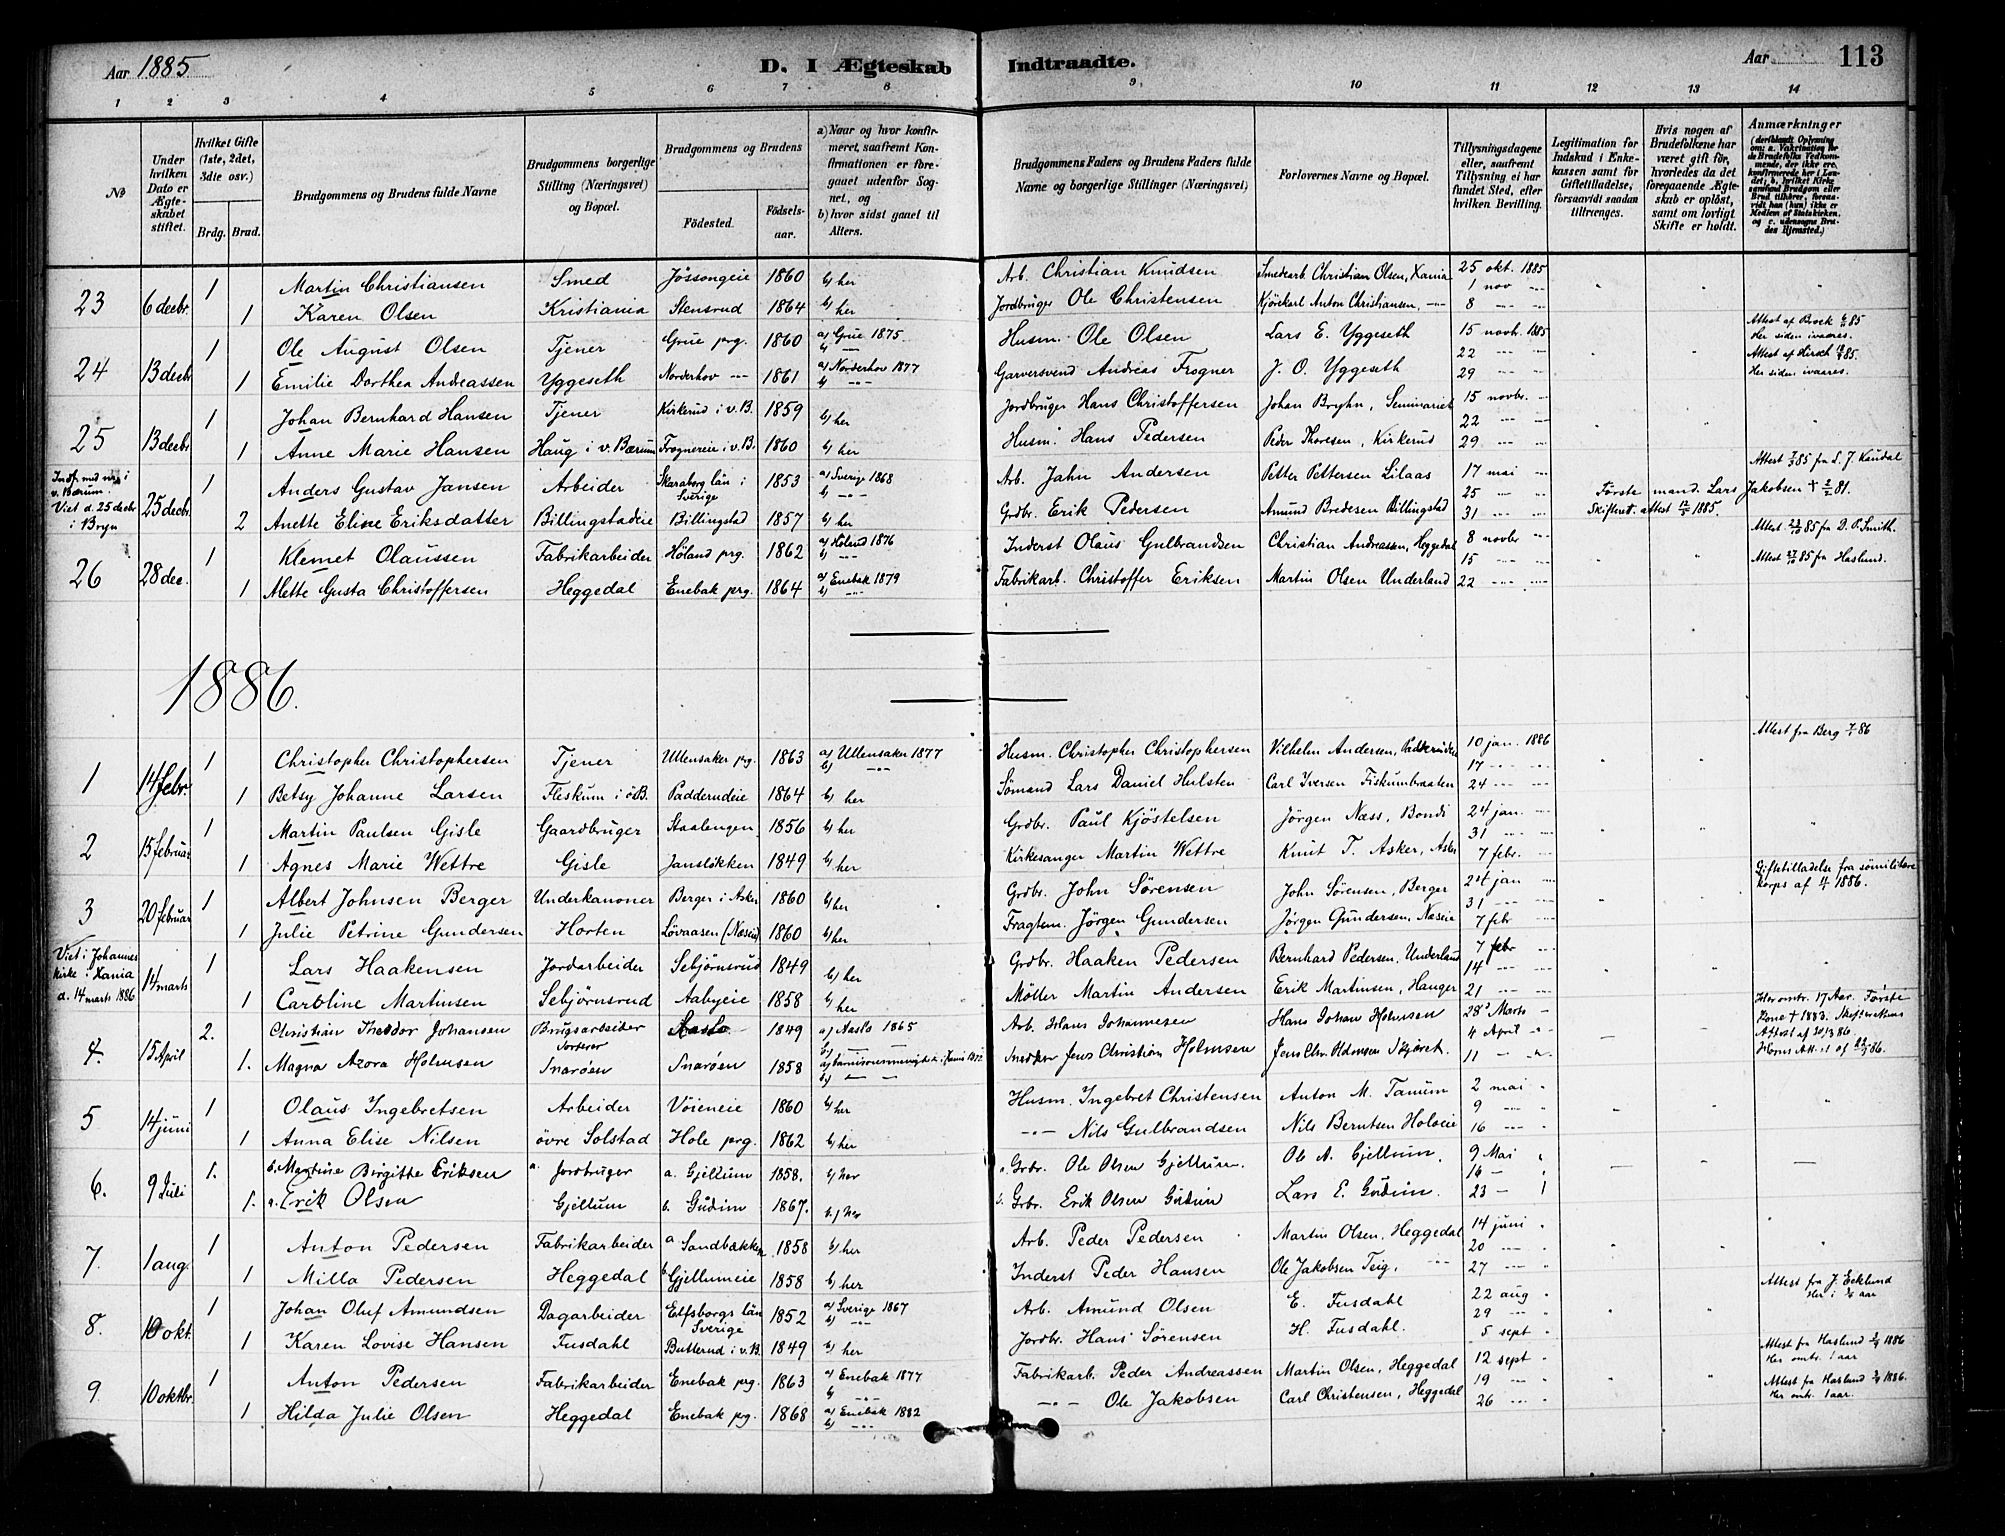 Aar 1885
D. I Ægteskab Indtraadte.
Aar
113
1 2 3 4 5 6 7 8 9 10 11 12 13 14
No
Under hvilken Dato er Ægteskabet stiftet.
Hvilket Gifte (1ste, 2det, 3die osv.)
Brdg. Brud.
Brudgommens og Brudens fulde Navne
Brudgommens borgerlige Stilling (Næringsvei) og Bopæl.
Brudgommens og Brudens
Fødested.
Fødselsaar.
a) Naar og hvor konfirmeret, saafremt Konfirmationen er foregaaet udenfor Sognet, og
b) hvor sidst gaaet til Alters.
Brudgommens Faders og Brudens Faders fulde Navne og borgerlige Stillinger (Næringsvei)
Forlovernes Navne og Bopæl.
Tillysningsdagene eller, saafremt Tillysning ei har fundet Sted, efter hvilken Bevilling.
Legitimation for Indskud i Enkekassen samt for Giftetilladelse, forsaavidt saadan tiltrænges.
Hvis nogen af Brudefolkene har været gift før, hvorledes da det foregaaende Ægteskab er opløst, samt om lovligt Skifte er holdt.
Anmærkninger
23 6 decbr. 1 Martin Christiansen Smed Jössongeie 1860 b) her Arb. Christian Knudsen Smedearb. Christian Olsen, Xania 25 okt. 1885
1 nov
1 Karen Olsen Kristiania Stensrud 1864 b) her Jordbruger Ole Christensen Kjörekarl Anton Christiansen 8
24 13 decbr 1 Ole August Olsen Tjener Grue prg. 1860 a) Grue 1875 Husm. Ole Olsen Lars E. Yggeseth 15 novb. 1885 Attest af Brock 85
Her siden ivaares.
22 Attest af Hirsch 85.
1 Emilie Dorthea Andreassen Yggeseth Norderhov 1861 a) Norderhov 1877 Garversvend Andreas Frogner J. O. Yggeseth 29 Her siden ivaares.
25 13 decbr 1 Johan Bernhard Hansen Tjener Kirkerud i v. B. 1859 b) her Jordbruger Hans Christoffersen Johan Bryhn, Seminariet 15 novbr.
22
1 Anne Marie Hansen Haug i v. Bærum Frognereie i v. B. 1860 b) her Husm. Hans Pedersen Peder Thoresen, Kirkerud 29
Indf. med urg i v. Bærum. Viet d. 25 decbr i Bryn 25 decbr. 1 Anders Gustav Jansen Arbeider Skaraborg län i Sverige 1853 a) Sverige 1868 Arb. Jahn Andersen Petter Pettersen Lilaas 17 mai Attest 85 fra S. J. Kindal
25 Første mand. Lars Jakobsen † 81.
2 Anette Eline Eriksdatter Billingstadeie Billingstad 1857 b) her Grdbr. Erik Pedersen Amund Bredesen Billingstad 31 Skifteret. attest 1885.
26 28 dec. 1 Klemet Olaussen Fabrikarbeider Høland prg. 1862 a) Höland 1876 Inderst Olaus Gulbrandsen Christian Andreassen, Heggedal 8 novbr Attest 85 fra D. P. Smith.
15 Attest 85 fra Haslund.
1 Mette Gusta Christoffersen Heggedal Enebak prg. 1864 a) Enebak 1879 Fabrikarb. Christoffer Eriksen Martin Olsen Underland 22
1886.
1 14 febr. 1 Christopher Christophersen Tjener Ullensaker prg. 1863 a) Ullensaker 1877 Husm. Christopher Christophersen Vilhelm Andersen, Padderudeie 10 jan. 1886 Attest fra Berg 86
17
1 Betsy Johanne Larsen Fleskum i ö. B. Padderudeie 1864 b) her Sömand Lars Daniel Hulsten Carl Iversen Fiskumbraaten 24
2 15 februar 1 Martin Paulsen Gisle Gaardbruger Staalengen 1856 b) her Grdbr. Paul Kjöstelsen Jörgen Næss, Bondi 24 jan.
31
1 Agnes Marie Wettre Gisle Jansløkken 1849 b) her Kirkesanger Martin Wettre Knut T. Asker, Asker 7 febr.
3 20 februar 1 Albert Johnsen Berger Underkanoner Berger i Asker 1860 b) her Grdbr. John Sörensen John Sörensen, Berger 24 jan Giftetilladelse fra sömilitære korps af 1886.
31
1 Julie Petrine Gundersen Horten Lövaasen (Næseie) 1860 b) her Fragtem. Jörgen Gundersen Jørgen Gundersen, Næseie 7 febr
Viet i Johannes kirke i Xania d. 14 marts 1886. 14 marts 1 Lars Haakensen Jordarbeider Sebjørnsrud 1849 b) her Grdbr. Haaken Pedersen Bernhard Pedersen, Underland 7 febr
14
1 Caroline Martinsen Sebjørnsrud Aabyeie 1858 b) her Möller Martin Andersen Erik Martinsen, Hanger 21
4. 15 April 2. Christian Theodor Johansen Brugsarbeider Aaslo 1849 a) Aaslo 1865 Arb. Hans Johannesen Hans Johan Holmsen 28de Marts Her omtr. 17 Aar. Første Kone † 1883. Skifterettens Attest af 30/3 86.
4 April
1. Magna Azora Holmsen Snarøen Snarøen 1858 Snedker Jens Christian Holmsen Jens Chr. Oldmosen Skjøret. 11
5 14 juni 1 Olaus Ingebretsen Arbeider Vöieneie 1860 b) her Husm. Ingebret Christensen Anton M. Tanum 2 mai
9
1 Anna Elise Nilsen övre Solstad Hole prg. 1862 b) her Nils Gulbrandsen Nils Berntsen Holoeie 16
6. 9 Juli 1. b. Martine Birgitte Eriksen a. Jordbruger a. Gjellum 1858. b) her a. Grbr. Ole Olsen Gjellum. Ole A. Gjellum. 9 Mai
16
1. a. Erik Olsen Gjellum b. Gudim 1867. b.) her b. Grbr. Erik Olsen Gudim Lars E. Gudim. 23
7. 1 aug. 1 Anton Pedersen Fabrikarbeider a Sandbækken 1858 b) her Arb. Peder Pedersen Martin Olsen, Heggedal 14 juni
20
1 Milla Pedersen Heggedal b Gjellumeie 1858 b) her Inderst Peder Hansen Ole Jakobsen Teig, 27
8. 10 okt. 1 Johan Oluf Amundsen Dagarbeider Elfsborgs län Sverige 1852 a) Sverige 1867 Arb. Amund Olsen E. Fusdahl 22 aug Attest fra J. Ecklund
29
1 Karen Lovise Hansen Fusdahl Butterud i v. B. 1849 b) her Jordbr. Hans Sörensen H. Fusdahl. 5 sept
9. 10 oktbr. 1 Anton Pedersen Fabrikarbeider Enebak prg. 1863 a) Enebak 1877 Fabrikarb. Peder Andreassen Martin Olsen, Heggedal 12 sept Attest fra Haslund 1886 Her omtr. 1 aar
19 Attest fra Haslund 1886.
1 Hilda Julie Olsen Heggedal Enebak prg. 1868 a) Enebak 1882 Ole Jakobsen Carl Christensen, Heggedal 26 Her omtr. 1 aar.